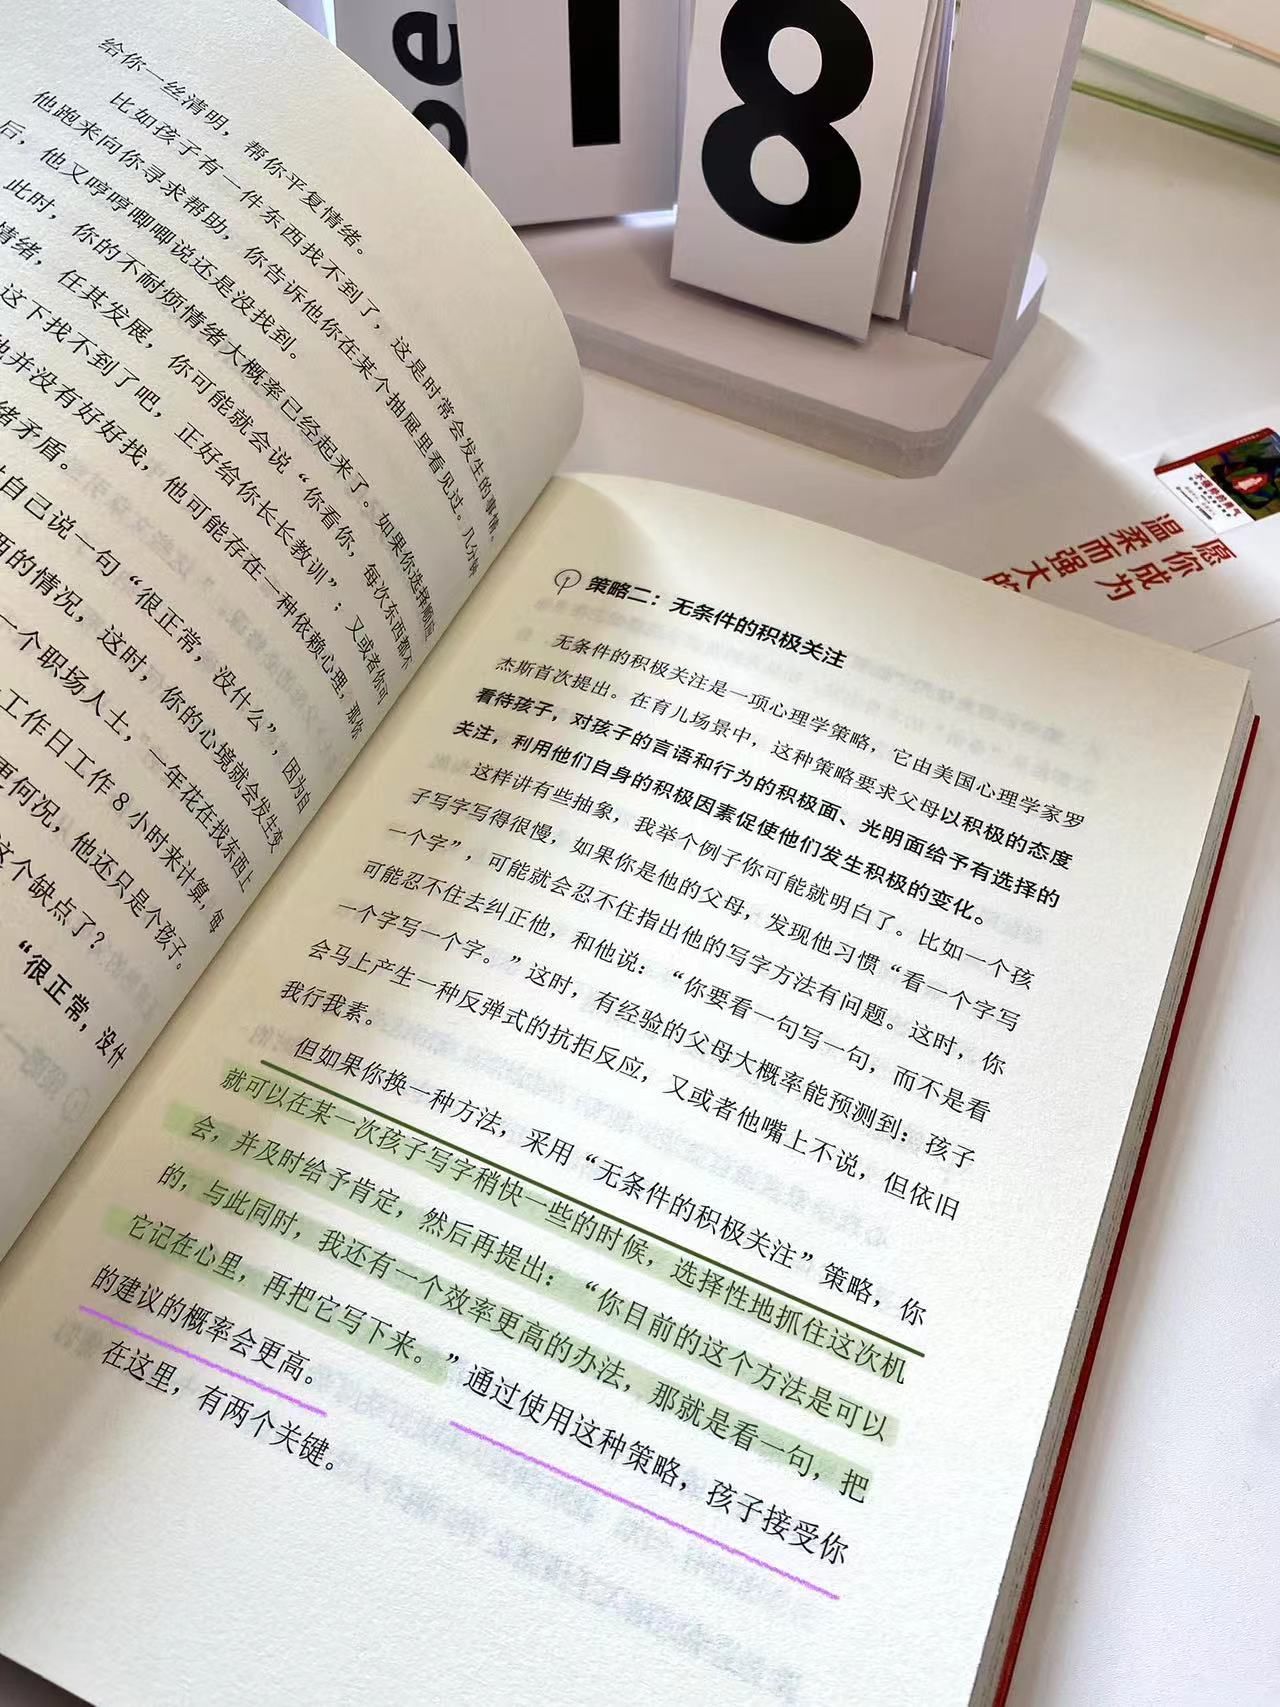 给你一丝清明，帮你平复情绪。
比如孩子有一件东西找不到了，这是时常会发生的事情。
他跑来向你寻求帮助，你告诉他你在某个抽屉里看见过。几分钟
后，他又哼哼唧唧说还是没找到。
此时，你的不耐烦情绪大概率已经起来了。如果你选择顺应
情绪，任其发展，你可能就会说“你看你，每次东西都不
这下找不到了吧，正好给你长长教训”；又或者你可
他并没有好好找，他可能存在一种依赖心理，那你
绪矛盾。
自己说一句“很正常，没什么”，因为自
西的情况，这时，你的心境就会发生变
一个职场人士，一年花在找东西上
工作日工作8小时来计算，每
更何况，他还只是个孩子。
这个缺点了？
“很正常，没什
策略二：无条件的积极关注
无条件的积极关注是一项心理学策略，它由美国心理学家罗
杰斯首次提出。在育儿场景中，这种策略要求父母以积极的态度
看待孩子，对孩子的言语和行为的积极面、光明面给予有选择的
关注，利用他们自身的积极因素促使他们发生积极的变化。
这样讲有些抽象，我举个例子你可能就明白了。比如一个孩
子写字写得很慢，如果你是他的父母，发现他习惯“看一个字写
一个字”，可能就会忍不住指出他的写字方法有问题。这时，你
可能忍不住去纠正他，和他说：“你要看一句写一句，而不是看
一个字写一个字。”这时，有经验的父母大概率能预测到：孩子
会马上产生一种反弹式的抗拒反应，又或者他嘴上不说，但依旧
我行我素。
但如果你换一种方法，采用“无条件的积极关注”策略，你
就可以在某一次孩子写字稍快一些的时候，选择性地抓住这次机
会，并及时给予肯定，然后再提出：“你目前的这个方法是可以
的，与此同时，我还有一个效率更高的办法，那就是看一句，把
它记在心里，再把它写下来。”通过使用这种策略，孩子接受你
的建议的概率会更高。
在这里，有两个关键。
8
愿你成为
温柔而强大的